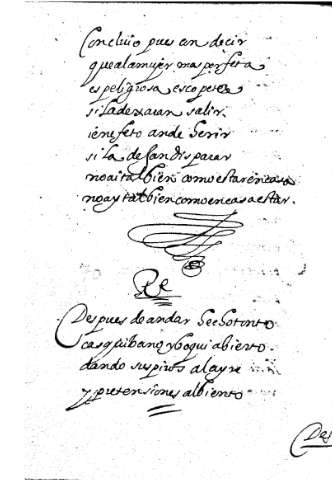 Concluio pues en decir
que a la mujer mas perfeta
es peligrosa escopeta
si la dexaran salir.
i en efeto an de herir
si la desean disparar
no ai tal bien como estar en casa
no ay tal bien como en casa estar.
Re
Despues de andar hecho tonto
casquibano y boquiabierto
dando suspiros al ayre
y pretensiones al biento
Des